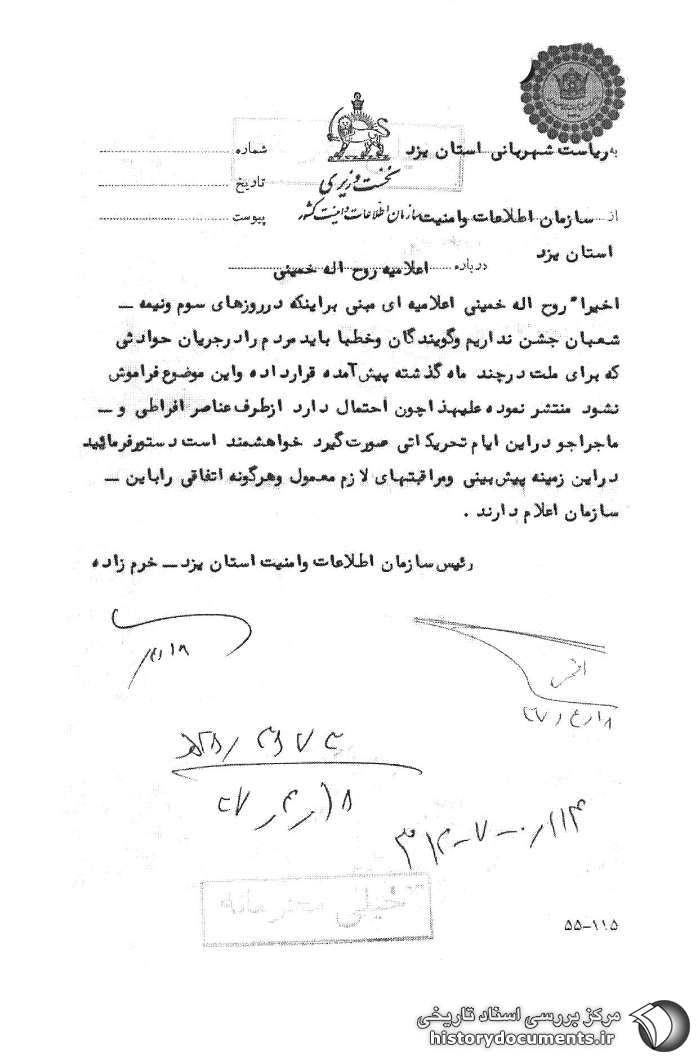 به ریاست شهربانی استان یزد
شماره
نخست وزیری
تاریخ
از سازمان اطلاعات وامنیت
سازمان اطلاعات و امنیت کشور
پیوست
استان یزد
درباره اعلامیه روح اله خمینی
اخیرا" روح اله خمینی اعلامیه ای مبنی براینکه درروزهای سوم ونیمه –
شعبان جشن نداریم وگویندگان وخطبا باید مردم رادرجریان حوادثی
که برای ملت درچند ماه گذشته پیش آمده قرارداده واین موضوع فراموش
نشود منتشر نموده علیهذا چون احتمال دارد ازطرف عناصر افراطی و –
ماجراجو دراین ایام تحریکاتی صورت گیرد خواهشمند است دستورفرمائید
دراین زمینه پیش بینی ومراقبتهای لازم معمول وهرگونه اتفاقی راباین –
سازمان اعلام دارند .
رئیس سازمان اطلاعات وامنیت استان یزد – خرم زاده
خیلی محرمانه
۵۵-۱۱۵
مرکز بررسی اسناد تاریخی
historydocuments.ir